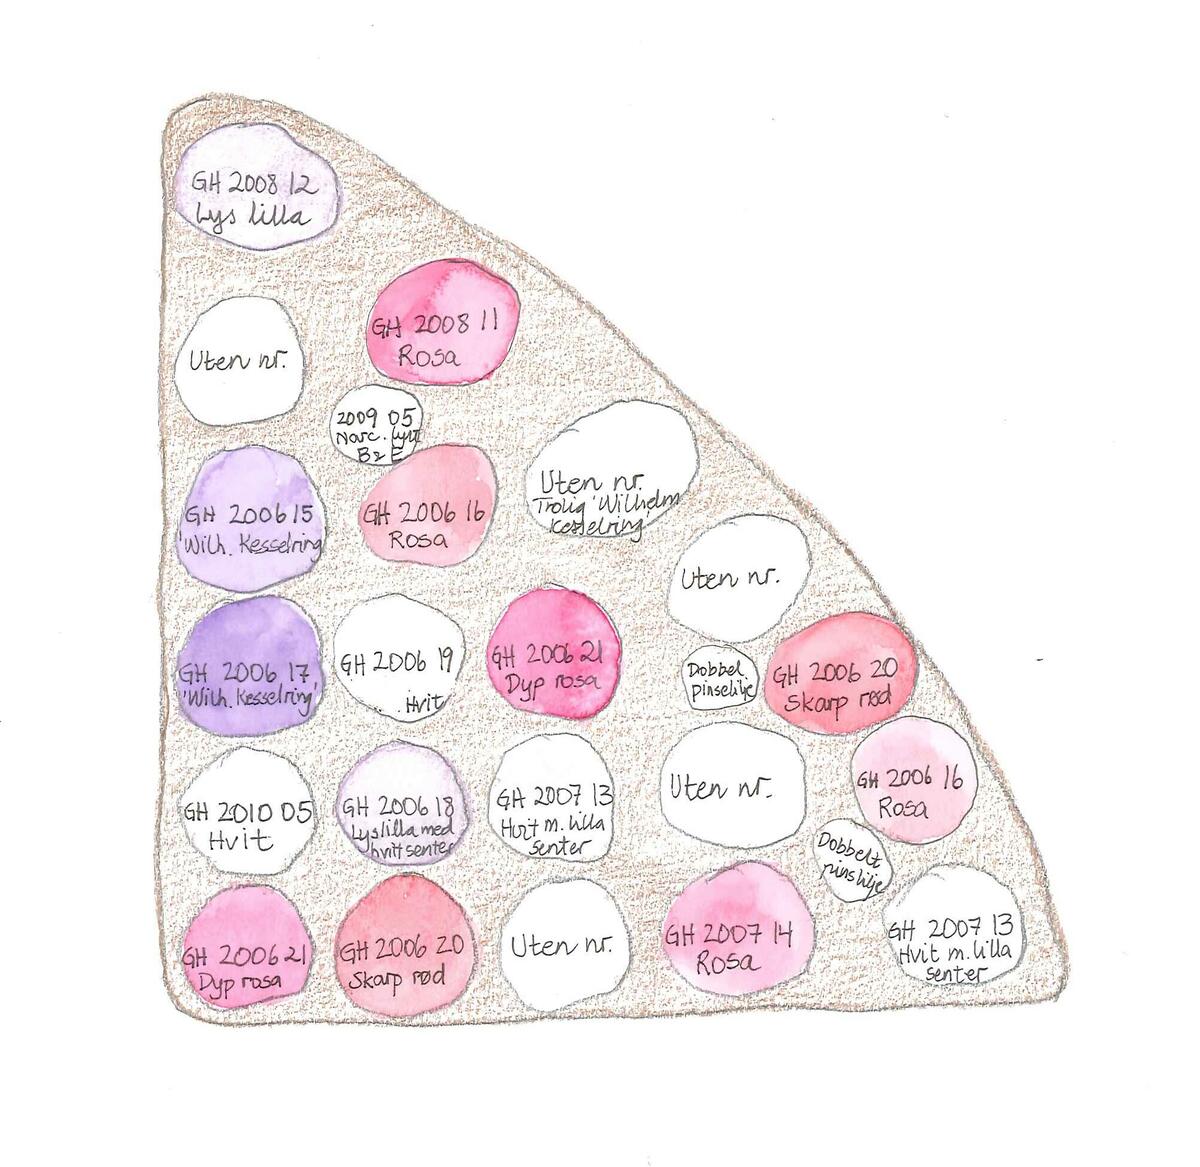 GH 2008 12
Lys lilla
GH 2008 11
Rosa
Uten nr.
2009 05
Narc.
B & E
Uten nr.
Trolig 'Wilhelm
Kesselring
GH 2006 15
'Wilh. Kesselring
GH 2006 16
Rosa
Uten nr.
GH 2006 17
'Wilh. Kesselring'
GH 2006 19
Hvit
GH 2006 21
Dyp rosa
Dobbel
pinselilje
GH 2006 20
Skarp rød
GH 2010 05
Hvit
GH 2006 18
Lys lilla med
hvitt senter
GH 2007 13
Hvit m. lilla
senter
Uten nr.
GH 2006 16
Rosa
Dobbelt
pinslilje
GH 2006 21
Dyp rosa
GH 2006 20
Skarp rød
Uten nr.
GH 2007 14
Rosa
GH 2007 13
Hvit m. lilla
senter